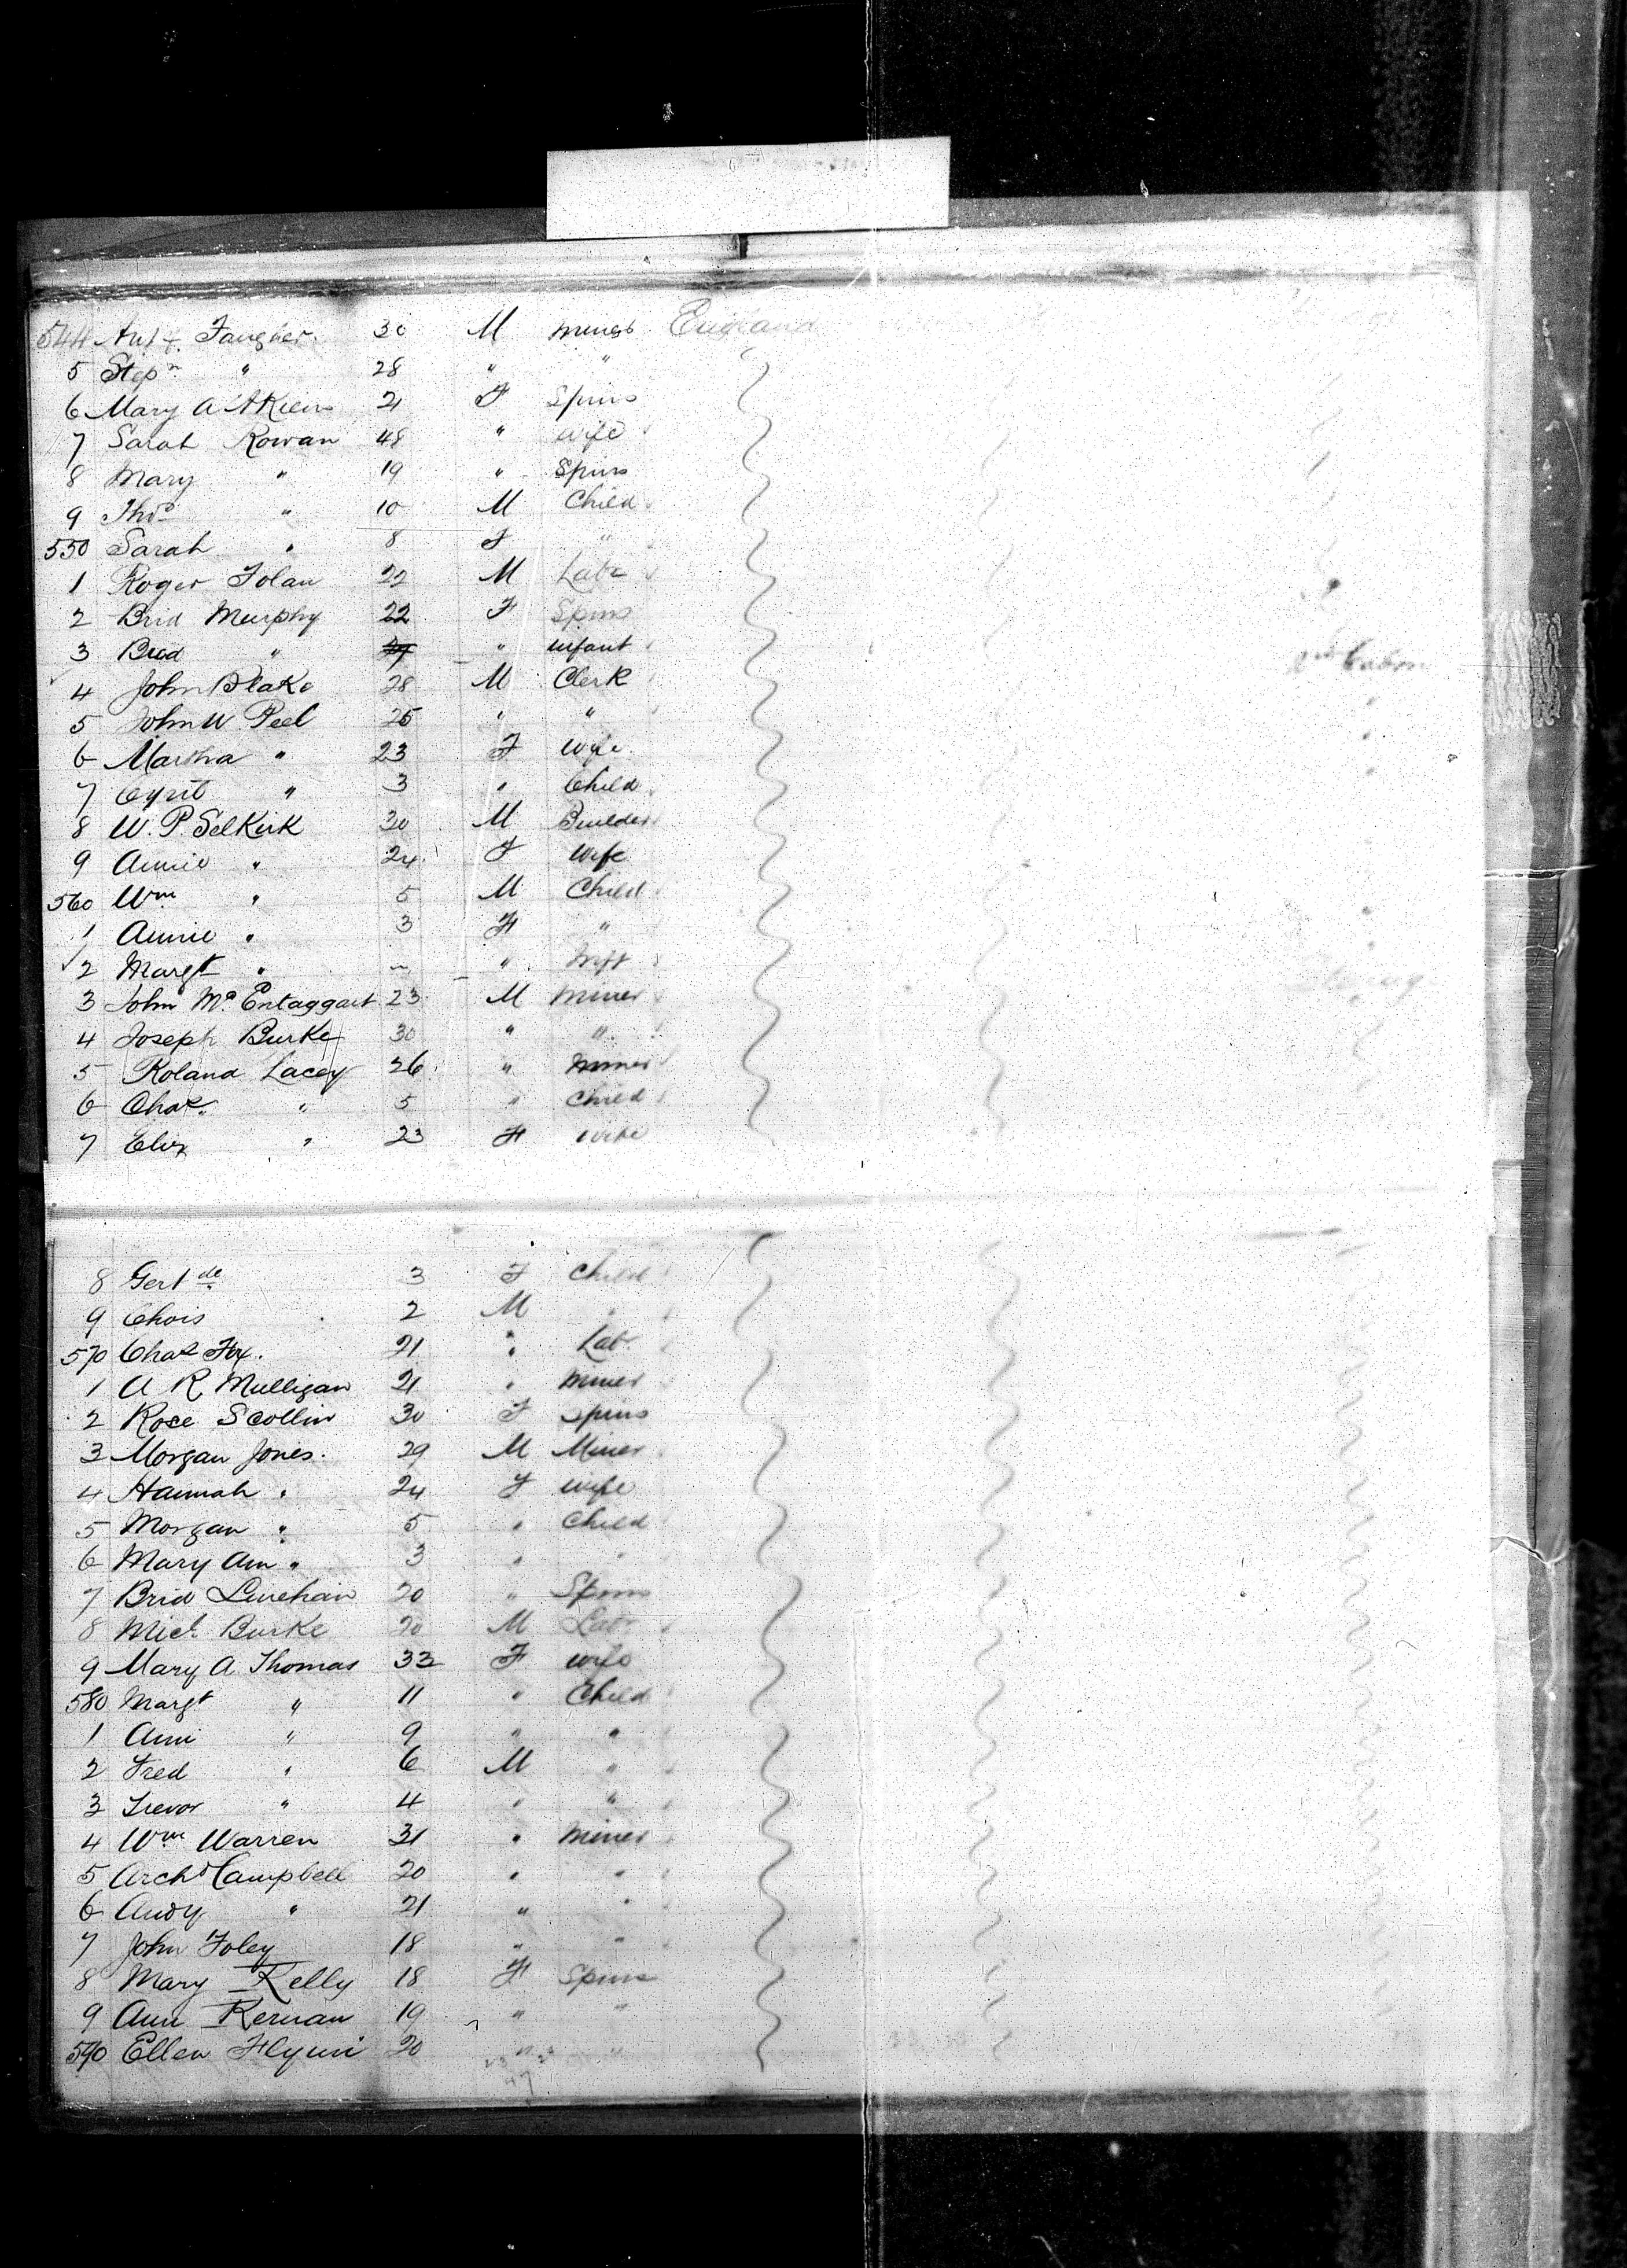 544 Anty. Faugher. 30 M Miner England
5 Stepn " 28 "
6 Mary A Atkins 21 F Spins
7 Sarah Rowan 48 " Wife
8 Mary " 19 " Spins
9 Thos " 10 M Child
550 Sarah " 8 F "
1 Roger Folan 22 M Labr
2 Brid Murphy 22 F Spins
3 Brid " " infant
4 John Blake 28 M Clerk 2nd Cabin
5 John W Peel 25 " " "
6 Martha " 23 F Wife "
7 Cyril " 3 " Child
8 W. P. Selkirk 30 M Builder
9 Annie " 24 F Wife
560 Wm " 5 M Child
1 Annie " 3 F "
2 Margt " "
3 John Mc Entaggart 23 M Miner
4 Joseph Burke 30 " "
5 Roland Lacey 26 " Miner
6 Chas. " 5 " Child
7 Eliz " 23 F Wife
8 Gertde 3 F Child
9 Chris 2 M "
570 Chas Fox. 21 " Labr
1 A R Mulligan 21 " Miner
2 Rose Scollin 30 F Spins
3 Morgan Jones. 29 M Miner
4 Hannah " 24 F Wife
5 Morgan " 5 " Child
6 Mary Ann " 3 " "
7 Brid Linehan 20 " Spins
8 Mich Burke 20 M Labr
9 Mary A Thomas 33 F Wife
580 Margt " 11 " Child
1 Ann " 9 " "
2 Fred " 6 M "
3 Trevor " 4 " "
4 Wm Warren 31 " Miner
5 Archd Campbell 20 " "
6 Andy " 21 " "
7 John Foley 18 " "
8 Mary Kelly 18 F Spins
9 Ann Kernan 19 " "
590 Ellen Flynn 20 " "
47